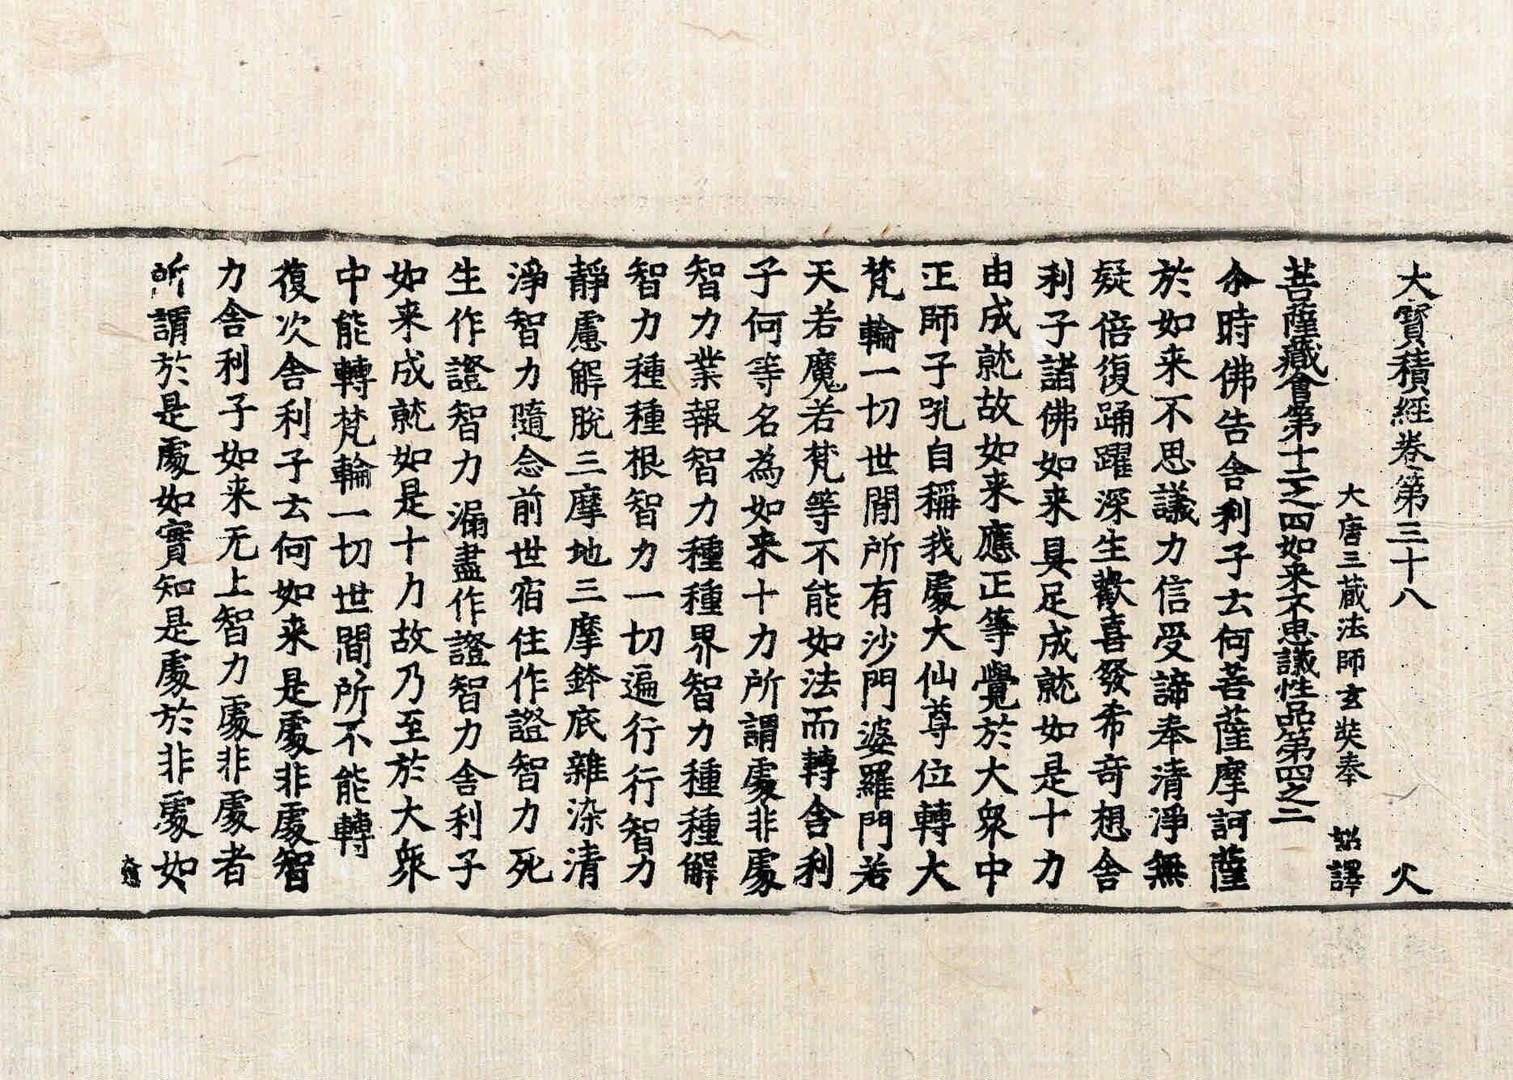 大寶積經卷第三十八　火
大唐三蔵法師玄奘奉　詔譯
菩薩藏會第十二之四如来不思議性品第四之二
尒時佛告舍利子云何菩薩摩訶薩
於如来不思議力信受諦奉清淨無
疑倍復踊躍深生歡喜發希奇想舍
利子諸佛如来具足成就如是十力
由成就故如来應正等覺於大衆中
正師子吼自稱我處大仙尊位轉大
梵輪一切世間所有沙門婆羅門若
天若魔若梵等不能如法而轉舍利
子何等名為如来十力所謂處非處
智力業報智力種種界智力種種解
智力種種根智力一切遍行行智力
靜慮解脫三摩地三摩鉢底雜染清
淨智力隨念前世宿住作證智力死
生作證智力漏盡作證智力舍利子
如来成就如是十力故乃至於大衆
中能轉梵輪一切世間所不能轉
復次舍利子云何如来是處非處智
力舍利子如来无上智力處非處者
所謂於是處如實知是處於非處如